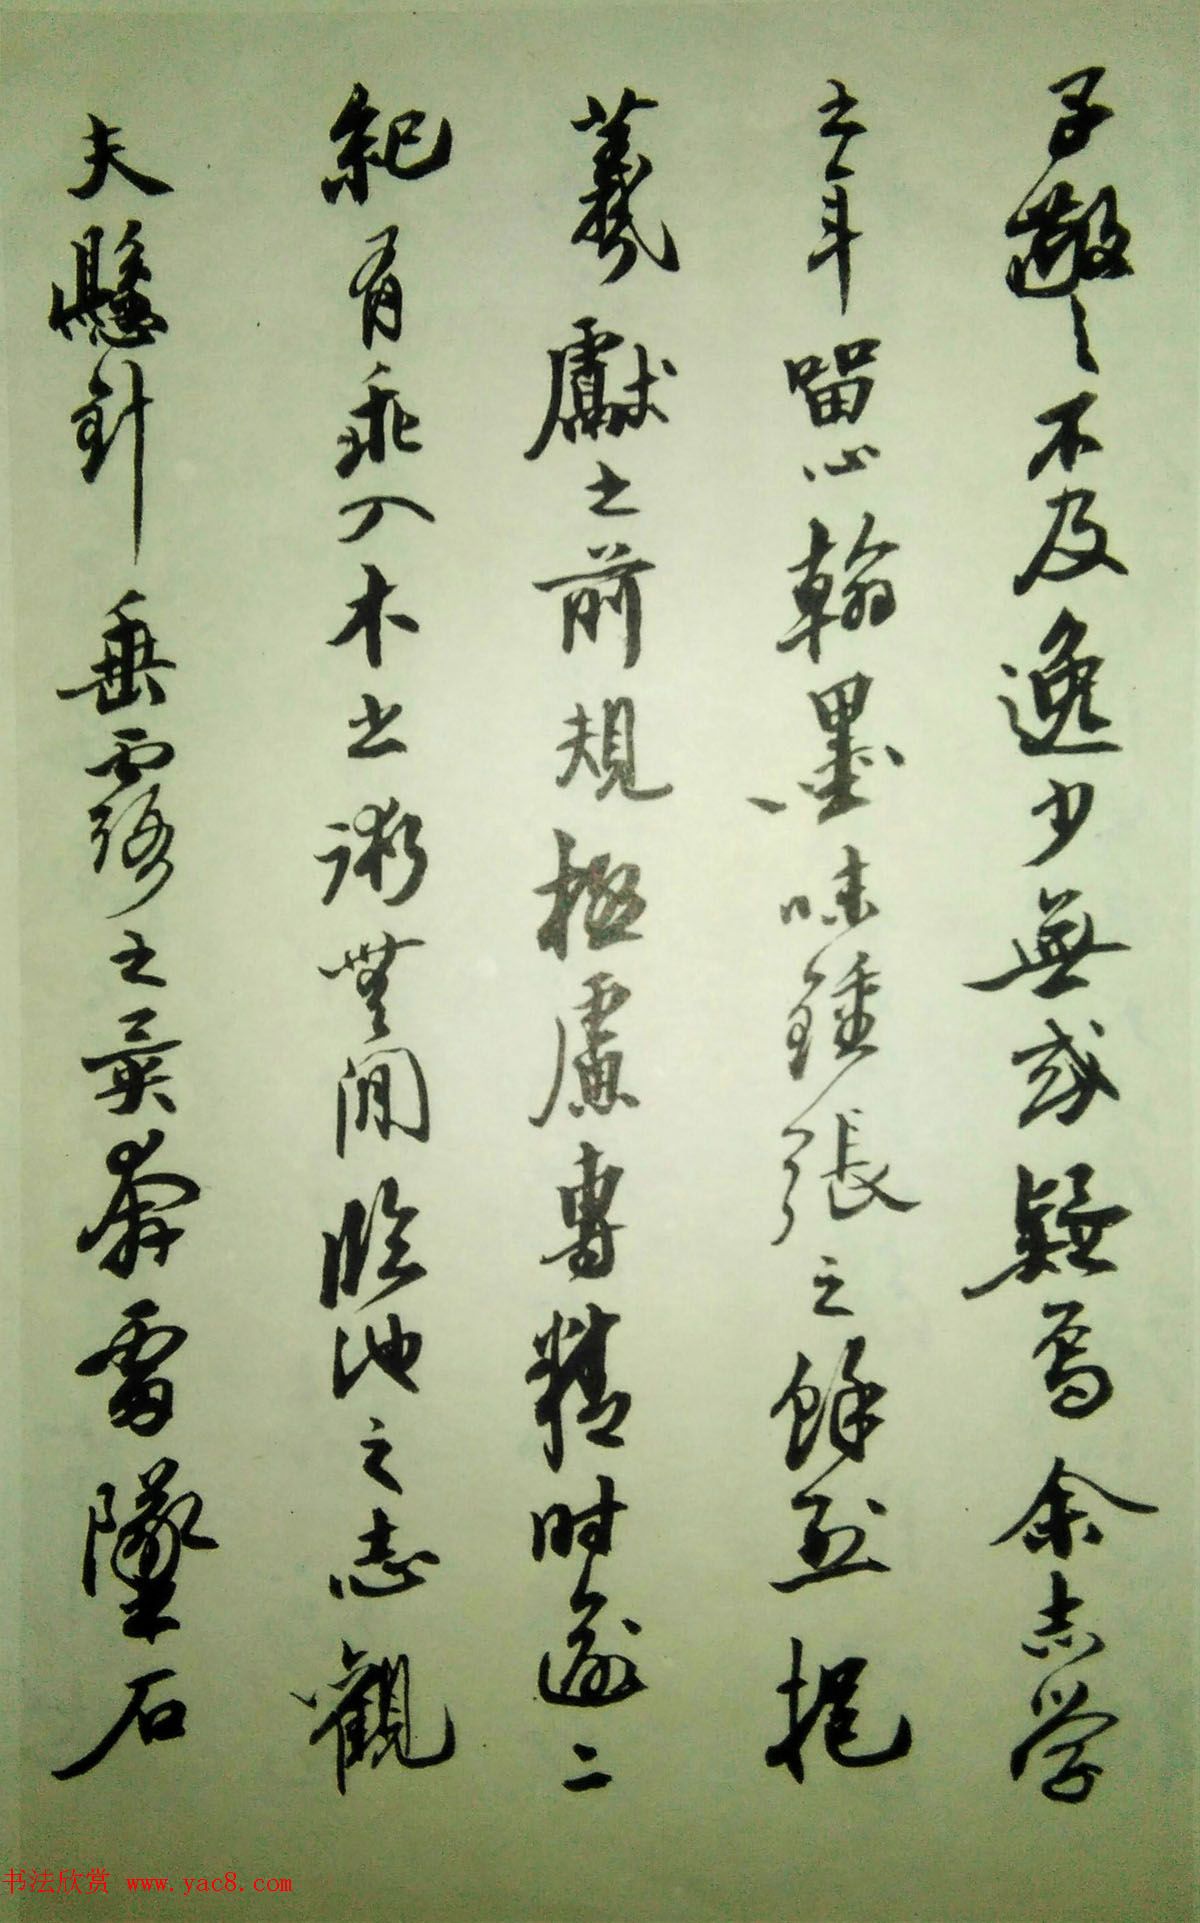 子敬之不及逸少無或疑焉余志学
之年留心翰墨味鍾張之餘烈挹
羲獻之前規極慮專精时逾二
紀有乖入木之術無間臨池之志觀
夫懸針垂露之異奔雷墜石
书法欣赏 www.yac8.com